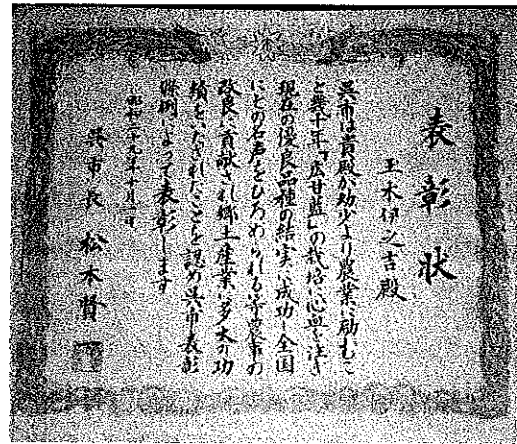 表彰状
玉木伊之吉殿
呉市は貴殿が幼少より農業に励むこ
と幾十年「広甘藍」の栽培に心血を注ぎ
現在の優良品種の結実に成功し全国
にその名声をひろめられる等農事の
改良に貢献され郷土産業に多大の功
績をいたされたことを認め呉市表彰
條例によって表彰します
昭和二十九年十月一日
呉市長 松本賢一